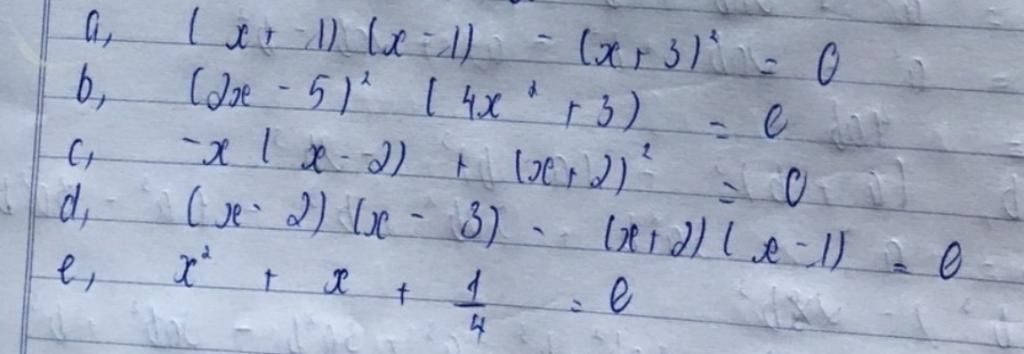 a, (x + 1) (x - 1) - (x + 3)² = 0
b, (2x - 5)² (4x² + 3) = 0
c, -x (x - 2) + (x + 2)² = 0
d, (x - 2) (x - 3) - (x + 2) (x - 1) = 0
e, x² + x + 1/4 = 0